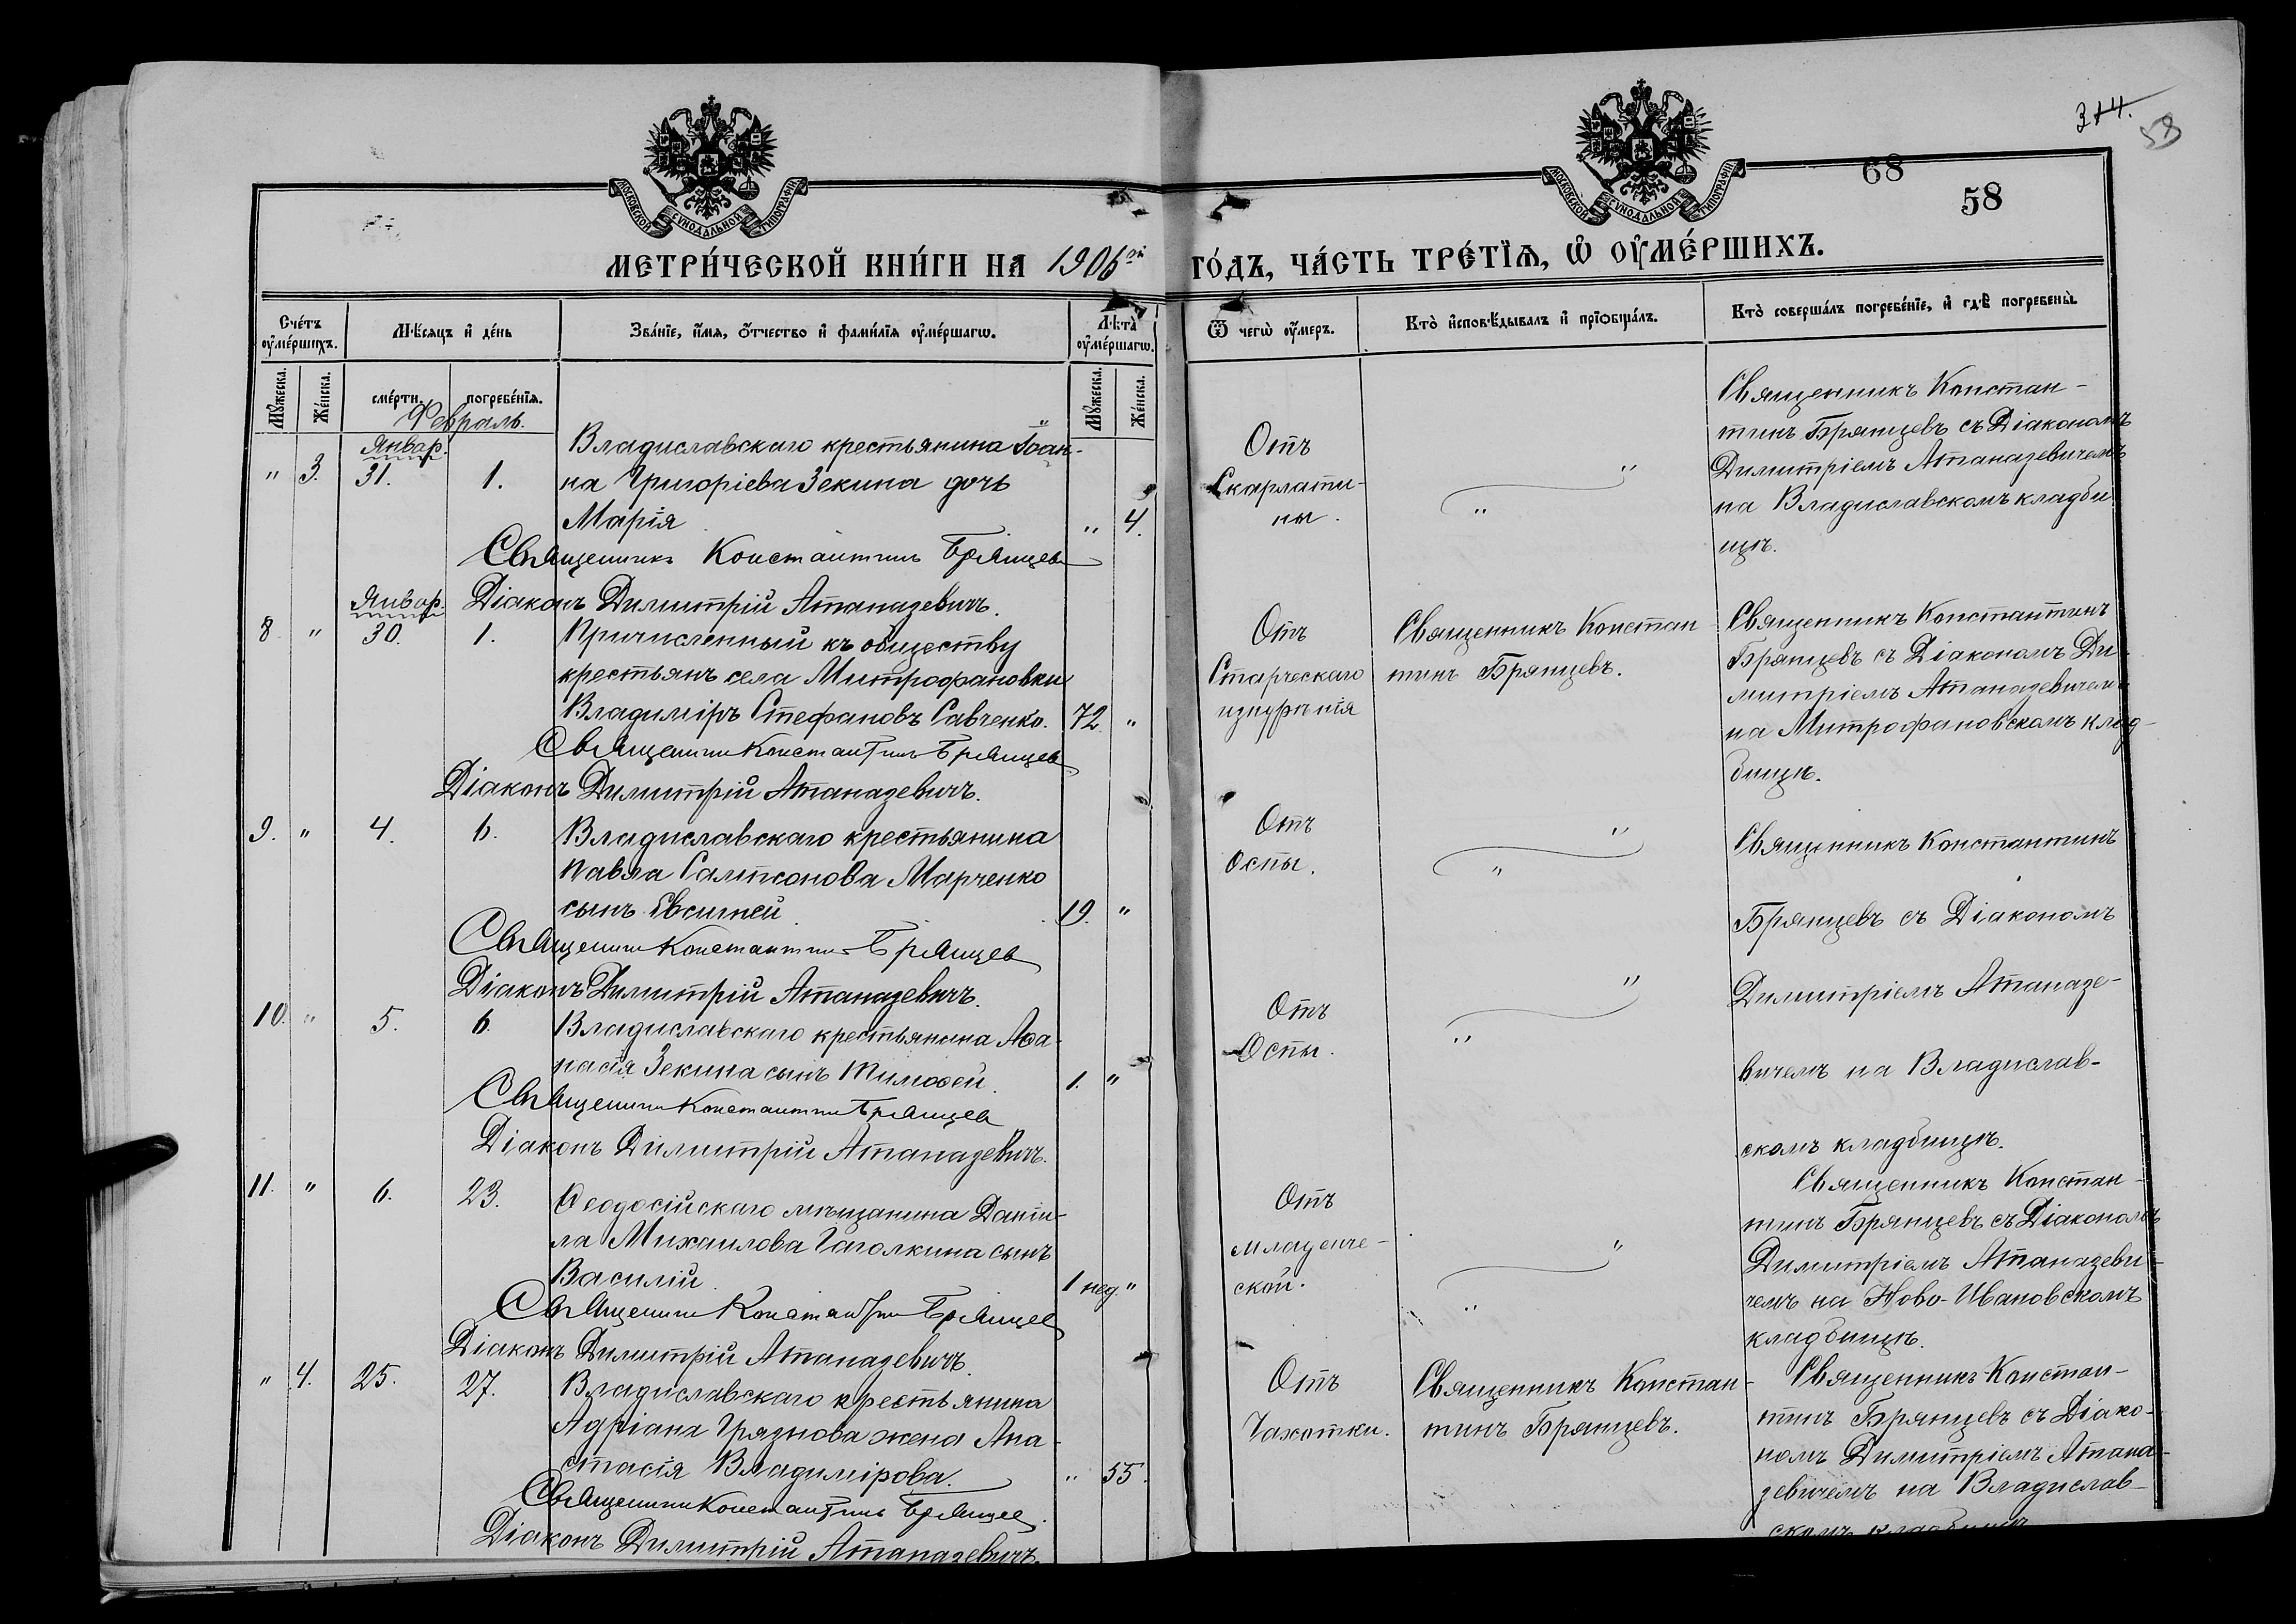 МОСКОВСКОЙ СУНОДАЛЬНОЙ ТИПОГРАФІИ
МОСКОВСКОЙ СУНОДАЛЬНОЙ ТИПОГРАФІИ
314.
58
68
58
МЕТРИ́ЧЕСКОЙ КНИ́ГИ НА 1906ой ГО́ДЪ, ЧА́СТЬ ТРЕ́ТЇѦ, Ѡ҆ ОУ҆МЕ́РШИХЪ.
Сче́тъ оу҆ме́ршихъ.
Мѣ́сяцъ и҆ де́нь
Зва́нїе, и҆́мя, ѻ҆́тчество и҆ фами́лїя оу҆ме́ршагѡ.
Лѣ́та оу҆ме́ршагѡ.
Ѿ чегѡ̀ оу҆́меръ.
Кто̀ и҆сповѣ́дывалъ и҆ прїѻбща́лъ.
Кто̀ соверша́лъ погребе́нїе, и҆ гдѣ̀ погребены̀.
Му́жеска.
Же́нска.
сме́рти.
погребе́нїя.
Му́жеска.
Же́нска.
Февраль.
Январ.
" 3. 31. 1.
Владиславскаго крестьянина Іоан-
на Григоріева Зекина дочь
Марія " 4.
Священникъ Константинъ Брянцевъ
Діаконъ Димитрій Атаназевичъ.
Отъ
Скарлати-
ны.
" "
Священникъ Констан-
тинъ Брянцевъ съ Діакономъ
Димитріемъ Атаназевичемъ
на Владиславскомъ кладби
щѣ.
Январ.
8 " 30. 1.
Причисленный къ обществу
крестьянъ села Митрофановки
Владиміръ Стефановъ Савченко. 72 "
Священникъ Константинъ Брянцевъ
Діаконъ Димитрій Атаназевичъ.
Отъ
Старческаго
изнуренія
Священникъ Констан
тинъ Брянцевъ.
Священникъ Константинъ
Брянцевъ съ Діакономъ Ди
митріемъ Атаназевичемъ
на Митрофановскомъ клад-
бищѣ.
9. " 4. 6.
Владиславскаго крестьянина
Павла Сампсонова Марченко
сынъ Евсигней 19. "
Священникъ Константинъ Брянцев
Діаконъ Димитрій Атаназевичъ.
Отъ
Оспы.
" "
Священникъ Константинъ
Брянцевъ съ Діакономъ
Димитріемъ Атаназе-
вичемъ на Владислав-
скомъ кладбищѣ.
10. " 5. 6.
Владиславскаго крестьянина Аѳа-
насія Зекина сынъ Тимоѳей. 1. "
Священникъ Константинъ Брянцев
Діаконъ Димитрій Атаназевичъ.
Отъ
Оспы.
" "
11. " 6. 23.
Ѳеодосійскаго мѣщанина Даніи-
ла Михаилова Гаголкина сынъ
Василій 1 нед. "
Священникъ Константинъ Брянцев
Діаконъ Димитрій Атаназевичъ.
Отъ
младенче-
ской.
" "
Священникъ Констан-
тинъ Брянцевъ съ Діакономъ
Димитріемъ Атаназеви-
чемъ на Ново-Ивановскомъ
кладбищѣ.
" 4. 25. 27.
Владиславскаго крестьянина
Адріана Грязнова жена Ана-
стасія Владимірова. " 55.
Священникъ Константинъ Брянцев
Діаконъ Димитрій Атаназевичъ.
Отъ
Чахотки.
Священникъ Констан-
тинъ Брянцевъ.
Священникъ Констан-
тинъ Брянцевъ съ Діако-
номъ Димитріемъ Атана-
зевичемъ на Владислав-
скомъ кладбищѣ